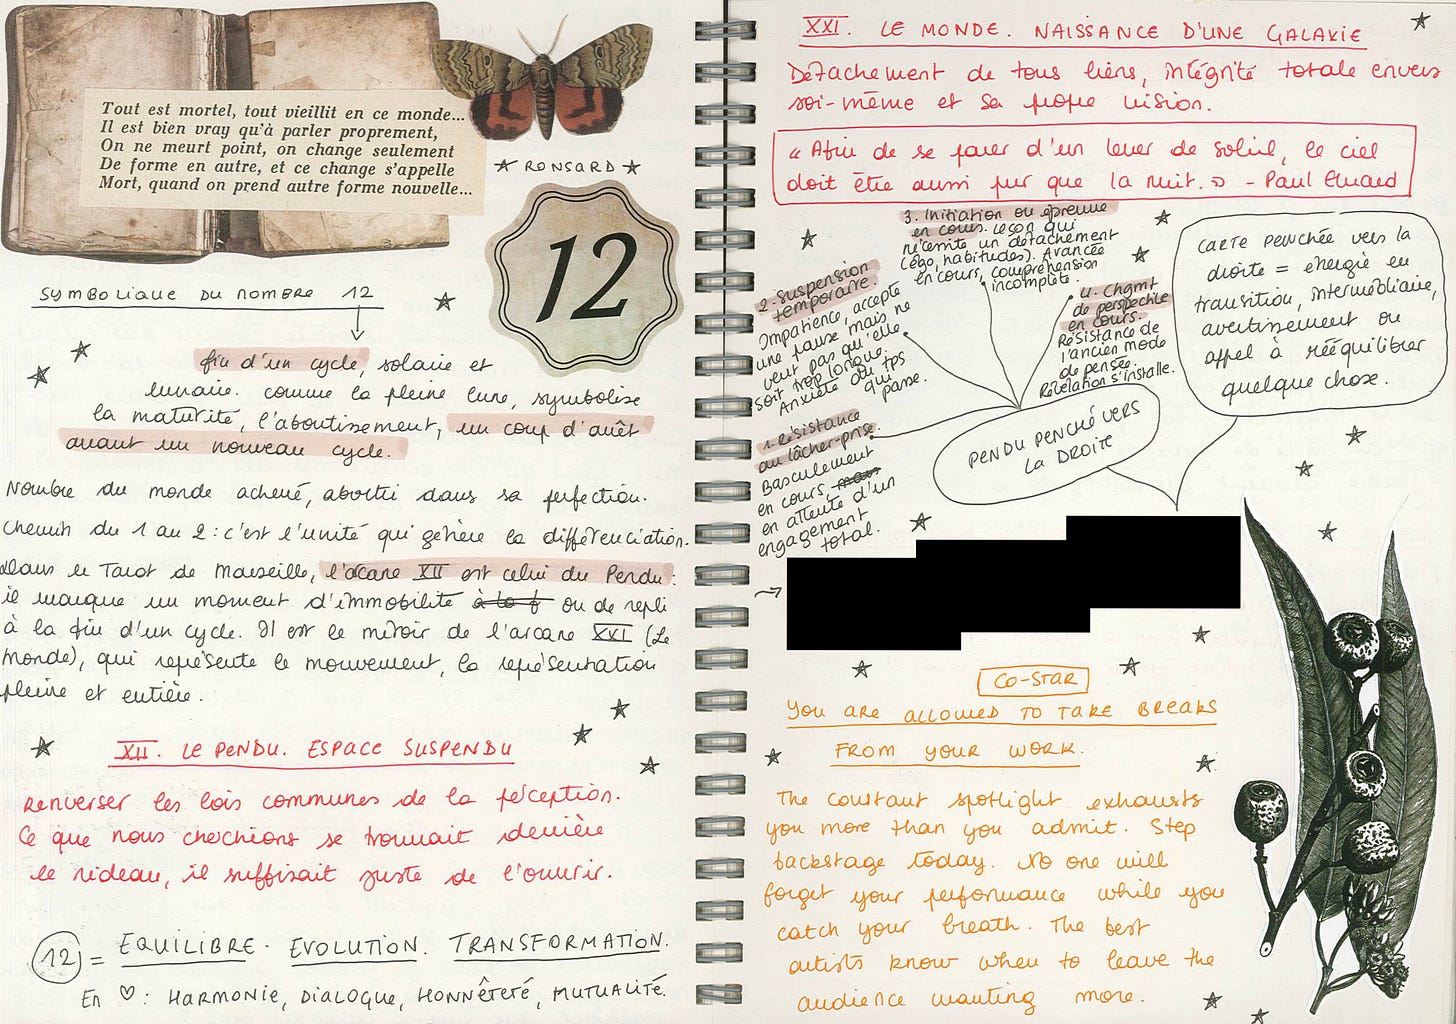 Tout est mortel, tout vieillit en ce monde...
Il est bien vray qu'à parler proprement,
On ne meurt point, on change seulement
De forme en autre, et ce change s'appelle
Mort, quand on prend autre forme nouvelle...
RONSARD
12
SYMBOLIQUE DU NOMBRE 12
fin d'un cycle, solaire et
lunaire. comme la pleine lune, symbolise
la maturité, l'aboutissement, un coup d'arrêt
avant un nouveau cycle.
Nombre du monde achevé, abouti dans sa perfection.
Chemin du 1 au 2 : c'est l'unité qui génère la différenciation.
Dans le Tarot de Marseille, l'arcane XII est celui du Pendu :
il marque un moment d'immobilité à la f ou de repli
à la fin d'un cycle. Il est le miroir de l'arcane XXI (Le
Monde), qui représente le mouvement, la représentation
pleine et entière.
XII. LE PENDU. ESPACE SUSPENDU
Renverser les lois communes de la perception.
Ce que nous cherchions se trouvait derrière
le rideau, il suffisait juste de l'ouvrir.
12 = EQUILIBRE. EVOLUTION. TRANSFORMATION.
En ♡ : HARMONIE, DIALOGUE, HONNÊTETÉ, MUTUALITÉ.
XXI. LE MONDE. NAISSANCE D'UNE GALAXIE
Détachement de tous liens, intégrité totale envers
soi-même et sa propre vision.
« Afin de se parer d'un lever de soleil, le ciel
doit être aussi pur que la nuit. » - Paul Eluard
3. Initiation ou épreuve
en cours. Leçon qui
nécessite un détachement
(égo, habitudes). Avancée
en cours, compréhension
incomplète.
2. Suspension
temporaire.
Impatience, accepte
une pause mais ne
veut pas qu'elle
soit trop longue.
Anxiété du tps
qui
passe.
4. Chgmt
de perspective
en cours.
Résistance de
l'ancien mode
de pensée.
Révélation s'installe.
1. Résistance
au lâcher-prise.
Basculement
en cours, mais
en attente d'un
engagement
total.
PENDU PENCHÉ VERS
LA DROITE
CARTE PENCHÉE vers la
droite = énergie en
transition, intermédiaire,
avertissement ou
appel à rééquilibrer
quelque chose.
CO-STAR
YOU ARE ALLOWED TO TAKE BREAKS
FROM YOUR WORK.
The constant spotlight exhausts
you more than you admit. Step
backstage today. No one will
forget your performance while you
catch your breath. The best
artists know when to leave the
audience wanting more.